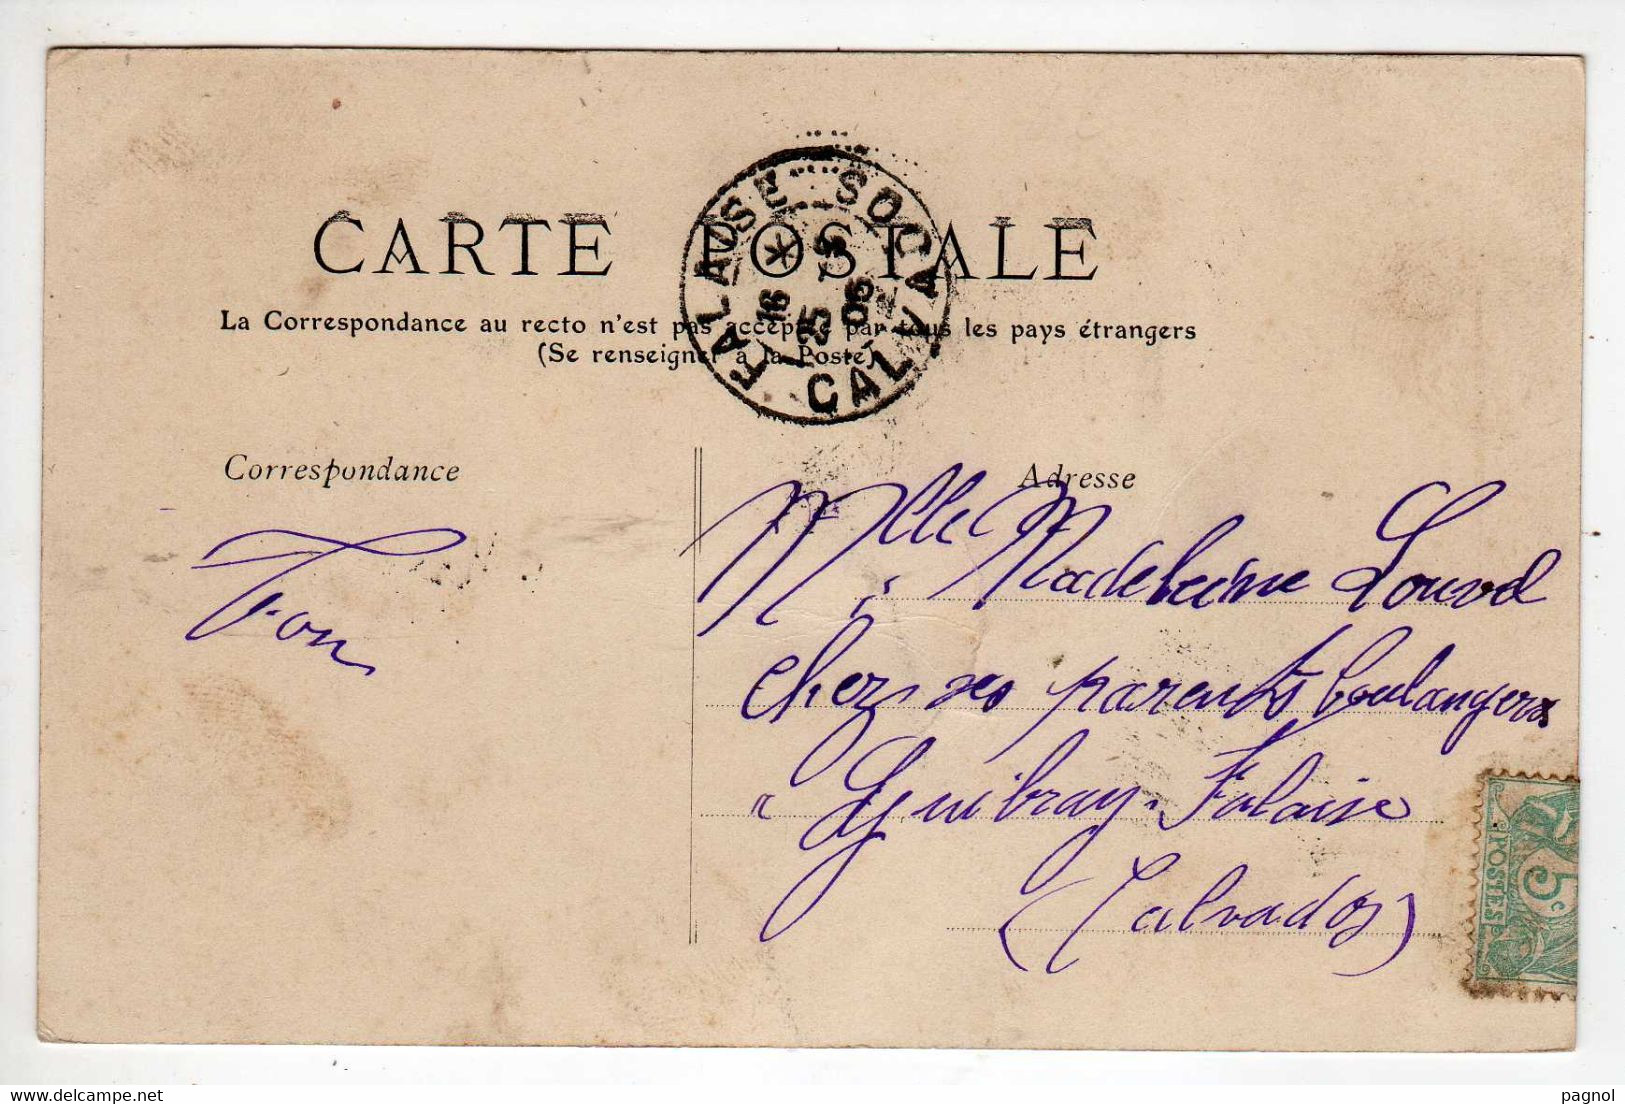 CARTE POSTALE
La Correspondance au recto n'est pas acceptée par tous les pays étrangers
(Se renseigner à la Poste)
FALAISE
CALVA
16
5
05
Correspondance
Adresse
Mlle Madeleine Louvel
chez ses parents boulangers
Guibray. Falaise
(Calvados)
POSTES
5c
pagnol